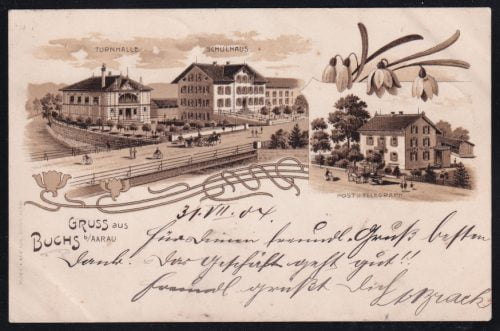 TURNHALLE
SCHULHAUS
POST U. TELEGRAPH.
GRUSS aus
BUCHS b/AARAU
31. VII. 04
Für Deinen freundl. Gruß besten
Dank. Das Geschäft geht gut!!
Freundl grüßt Dich